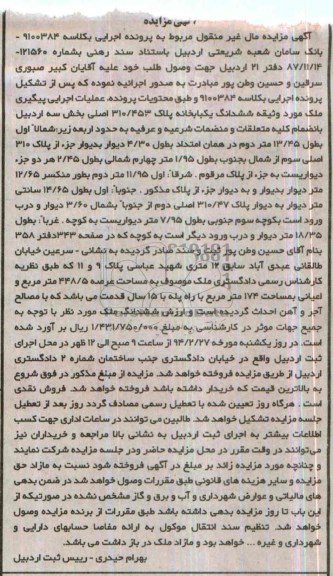 آگهی مزایده
آگهی مزایده مال غیر منقول مربوط به پرونده اجرایی بکلاسه ۹۱۰۰۳۸۴ -
بانک سامان شعبه شریعتی اردبیل باستناد سند رهنی بشماره ۱۲۱۵۶۰-
۸۷/۱۱/۱۴ دفتر ۲۱ اردبیل جهت وصول طلب خود علیه آقایان کبیر صبوری
سرقین و حسین وطن پور مبادرت به صدور اجرائیه نموده که پس از تشکیل
پرونده اجرایی بکلاسه ۹۱۰۰۳۸۴ و طبق محتویات پرونده، عملیات اجرایی پیگیری
ملک مورد وثیقه ششدانگ یکبابخانه پلاک ۳۱۰/۴۵۳ اصلی بخش سه اردبیل
بانضمام کلیه متعلقات و منضمات شرعیه و عرفیه به حدود اربعه زیر:شمالا" اول
بطول ۱۳/۴۵ متر دوم در همان امتداد بطول ۴/۳۰ دیوار بدیوار جزء از پلاک ۳۱۰
اصلی سوم از شمال بجنوب بطول ۱/۹۵ متر چهارم شمالی بطول ۲/۴۵ هر دو جزء
دیواریست به جزء از پلاک مرقوم . شرقا": اول ۱۱/۹۵ متر دوم بطور منکسر ۱۲/۶۵
متر دیوار بدیوار و به دیوار جزء از پلاک مذکور . جنوبا": اول بطول ۱۴/۶۵ سانتی
متر دیوار به دیوار پلاک ۳۱۰/۴۷ اصلی دوم از جنوبا" بشمال ۳/۶۰ دیوار و درب
ورود است بکوچه سوم جنوبی بطول ۷/۹۵ متر دیواریست به کوچه . غربا": بطول
۱۸/۳۵ متر دیوار و درب ورود دیگر است به کوچه که در صفحه ۳۴۳دفتر ۳۵۸
بنام آقای حسین وطن پور ثبت و سند صادر گردیده به نشانی - سرعین خیابان
طالقانی عبدی آباد سابق ۱۲ متری شهید عباسی پلاک ۹ و ۱۱ که طبق نظریه
کارشناس رسمی دادگستری ملک موصوف به مساحت عرصه ۴۴۸/۵ متر مربع و
اعیانی بمساحت ۱۷۴ متر مربع با راه پله با ۱۵ سال قدمت می باشد که با مصالح
آجر و آهن احداث گردیده است و ارزش ششدانگ ملک مورد نظر با توجه به
جمیع جهات موثر در کارشناسی به مبلغ ۱/۴۳۱/۷۵۰/۰۰۰ ریال بر آورد شده
است. در روز یکشنبه مورخه ۹۴/۲/۲۷ از ساعت ۹ صبح الی ۱۲ ظهر در محل اجرای
ثبت اردبیل واقع در خیابان دادگستری جنب ساختمان شماره ۲ دادگستری
اردبیل از طریق مزایده فروخته خواهد شد. مزایده از مبلغ مذکور در فوق شروع
به بالاترین قیمت که خریدار داشته باشد فروخته خواهد شد. فروش نقدی
است . هرگاه روز تعیین شده با تعطیل رسمی مصادف گردد روز بعد از تعطیل
جلسه مزایده تشکیل خواهد شد. طالبین می توانند در ساعات اداری جهت کسب
اطلاعات بیشتر به اجرای ثبت اردبیل به نشانی بالا مراجعه و خریداران نیز
می‌توانند در وقت مقرر در محل مزایده حاضر ودر جلسه مزایده شرکت نمایند
و چنانچه مورد مزایده زائد بر مبلغ در آگهی فروخته شود نسبت به مازاد حق
مزایده و سایر هزینه های قانونی طبق مقررات وصول خواهد شد در ضمن بدهی
های مالیاتی و عوارض شهرداری و آب و برق و گاز مشخص نشده در صورتیکه از
این باب تا روز مزایده بدهی داشته باشد طبق مقررات از برنده مزایده وصول
خواهد شد. تنظیم سند انتقال موکول به ارائه مفاصا حسابهای دارایی و
شهرداری و غیره ... خواهد بود و مازاد ملک در باز داشت می باشد.
بهرام حیدری - رییس ثبت اردبیل